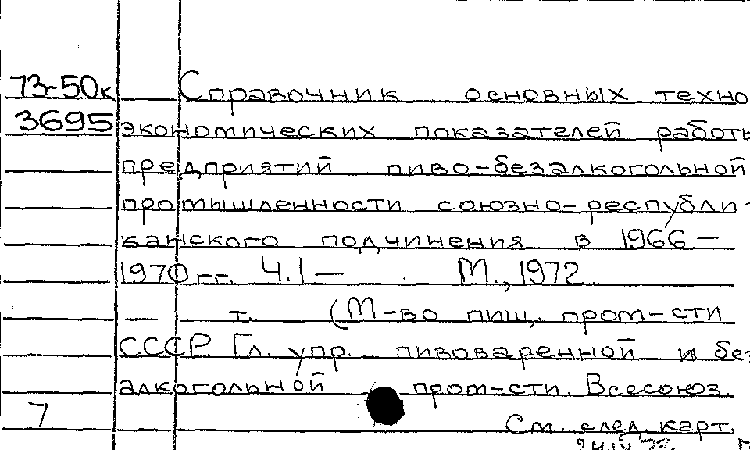 73-50к Справочник основных техно
3695 экономических показателей работы
предприятий пиво-безалкогольной
промышленности союзно-республи-
канского подчинения в 1966 –
1970 гг. Ч.1 – . М., 1972.
– т. (М-во пищ. пром-сти
СССР Гл. упр. пивоваренной и без
алкогольной пром-сти. Всесоюз.
7 См. след. карт.